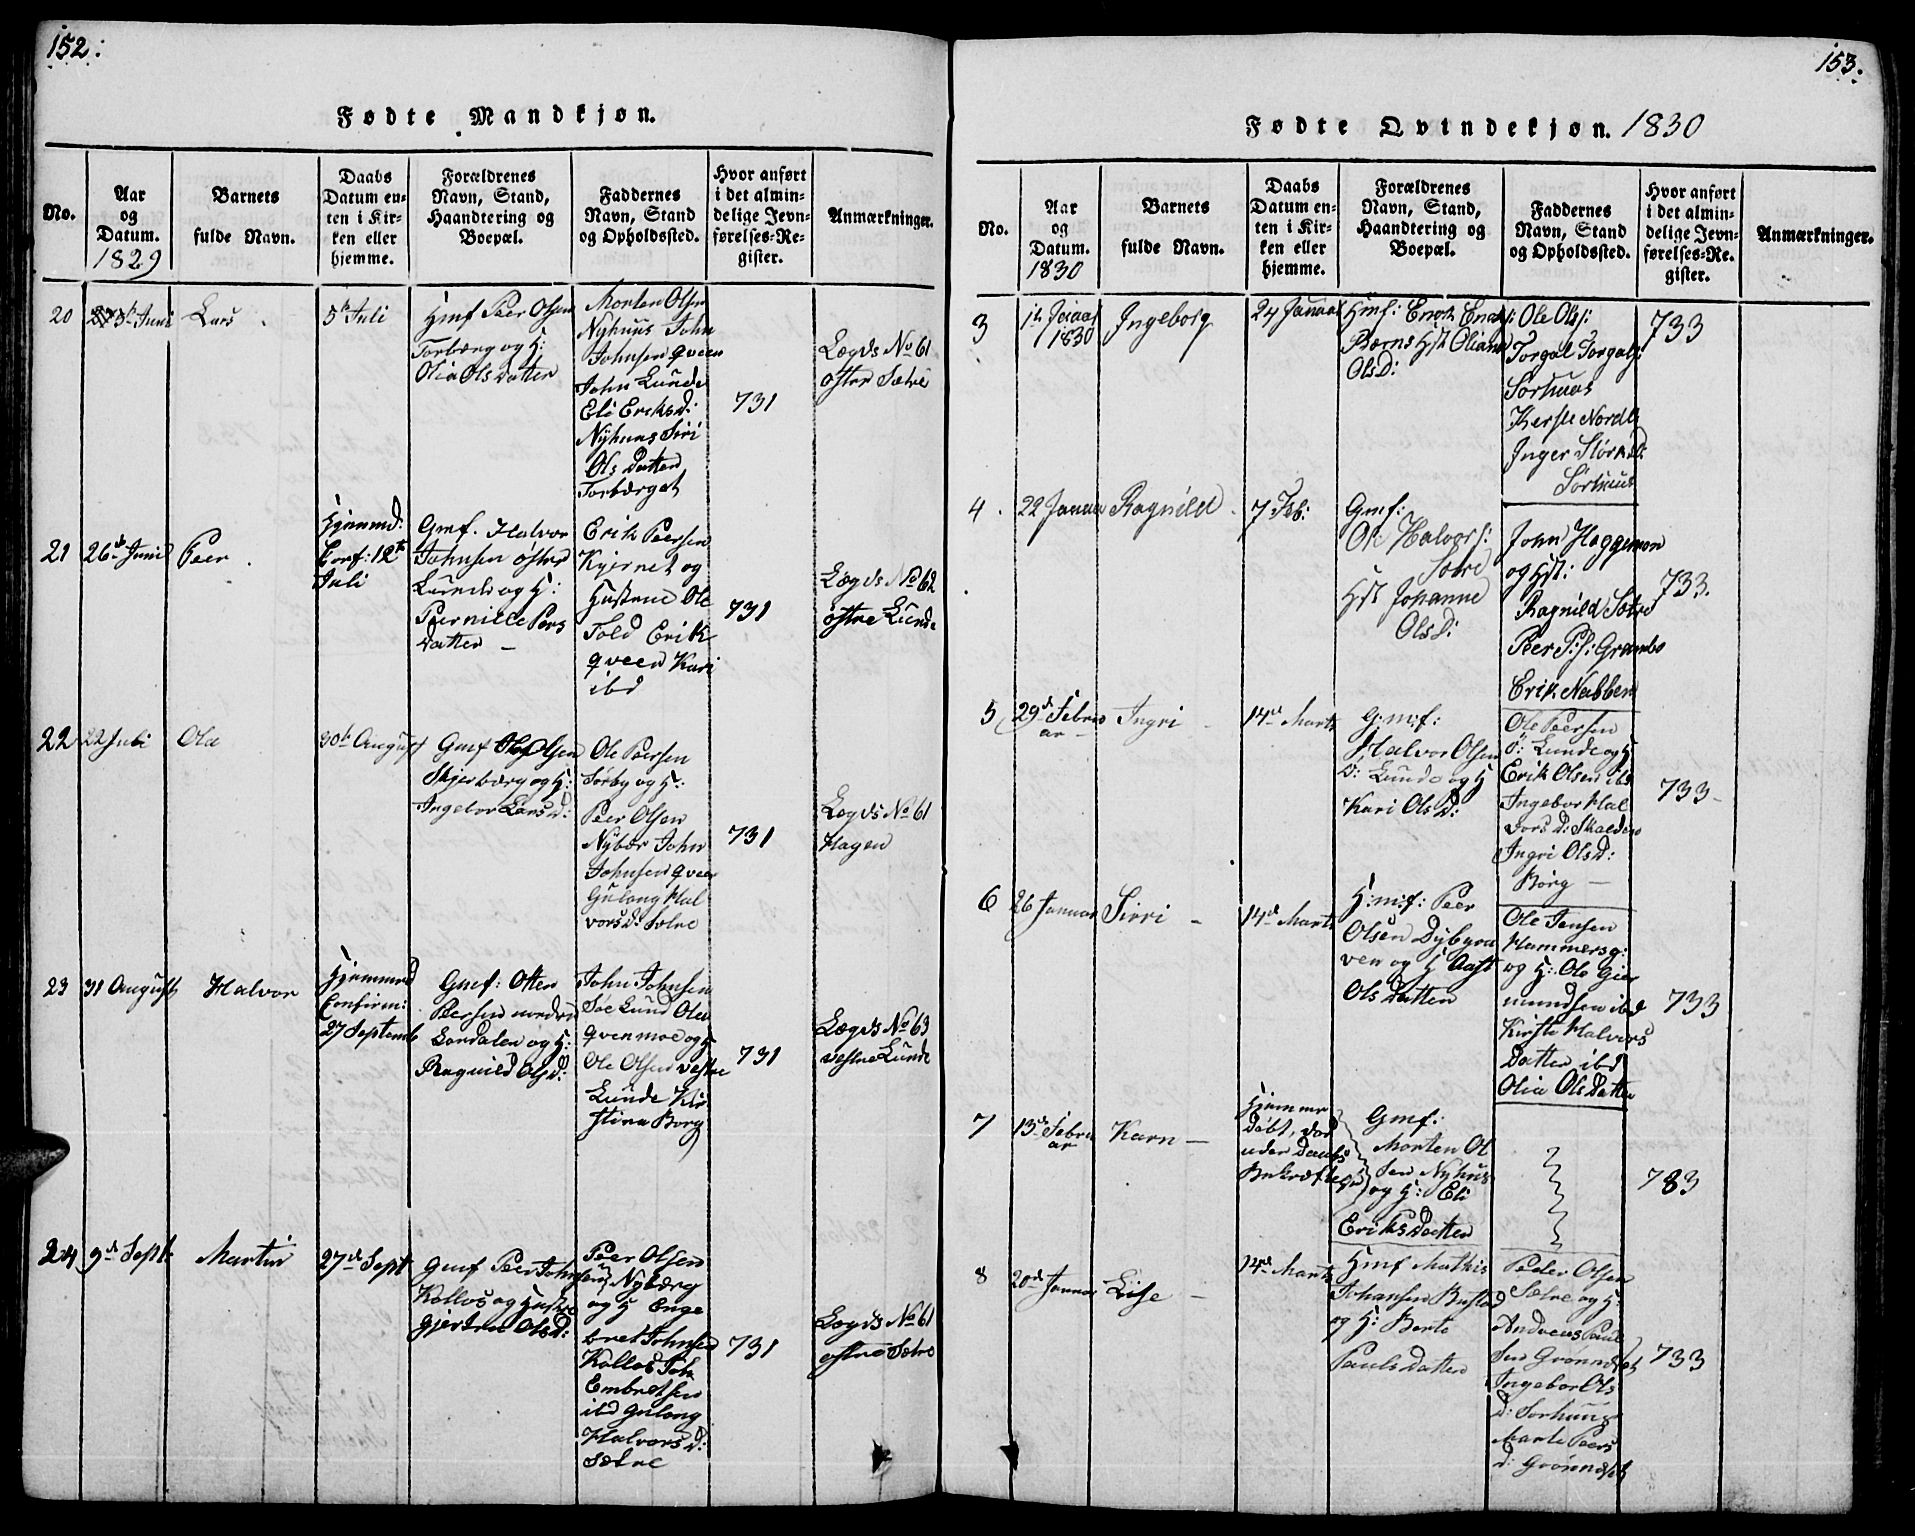 152.
Fødte Mandkjøn.
No.
Aar
og
Datum.
1829
Barnets
fulde Navn.
Daabs
Datum en-
ten i Kir-
ken eller
hjemme.
Forældrenes
Navn, Stand,
Haandtering og
Boepæl.
Faddernes
Navn, Stand
og Opholdssted.
Hvor anført
i det almin-
delige Jevn-
førelses-Re-
gister.
Anmærkninger.
20
Juni
Lars
5te Juli
Gmf Peer Olsen
Torbærg og H:
Olia Olsdatter
Morten Olsen
Nyhuus John
Johnsen qveen
John Lunde
Eli Eriksd:
Nyhuus Siri
Olsdatter
Torbærget
731
Lægds No 61
østre Sætre
21
26de Juni
Peer
Hjemmed:
Conf: 12te
Juli
Gmf. Halvor
Johnsen østre
Lunde og H:
Pernille Pers
Datter
Erik Peersen
Kjernet og
Hustrue Ole
Told Erik
qveen Kari
ibd
731
Lægds No 62
østre Lunde
22
22 Juli
Ola
30te August
Gmf Olsen
Skjerbærg og H:
Ingebor Larsd:
Ole Peersen
Sørby og H:
Peer Olsen
Nybær John
Johnsen qveen
Gulaug Hal
vorsd: Sætre
731
Lægds No 61
Hagen
23
31 August
Halvor
Hjemmed
Confirm:
27 Septemb
Gmf: Otter
Peersen nordre
Sordalen og H:
Ragnild Olsd:
John Johnsen
Søe Lund Ole
qvenmoe og H
Ole Olsen vestre
Lunde Kir
stina Borg
731
Lægds No 63
vestre Lunde
24
9de Sept
Martin
27de Sept
Gmf Peer John
Kollos og Hustr
Gjertrue Olsd:
Peer Olsen
Nybærg
og H Enge
bret Johnsen
Kollos Joh
Embretsen
ibd Gulaug
Halvorsd:
Sætre
731
Lægds No 61
østre Sætre
153.
Fødte Qvindekjøn. 1830
No.
Aar
og
Datum.
1830
Barnets
fulde Navn.
Daabs
Datum en-
ten i Kir-
ken eller
hjemme.
Forældrenes
Navn, Stand,
Haandtering og
Boepæl.
Faddernes
Navn, Stand
og Opholdssted.
Hvor anført
i det almin-
delige Jevn-
førelses-Re-
gister.
Anmærkninger.
3
1830
Ingeborg
24 Januar
Hmf: Enok Enoks:
Hst Oliana
Olsd:
Ole Ols:
Torgal Torgals:
Sørhuus
Kersle Nordl
Inger Størksd:
Sørhuus
733
4
22 Januar
Ragnild
7 Feb:
Gmf:
Ol: Halvors:
Sætre
Hst Johanne
Olsd:
John Haggemon
og Hst:
Ragnild Sætre
Peer P:s: Grambo
Erik Nabben
733.
5
29de Febru
ar
Ingri
14de Marts
G:m:f:
Halvor Olsen
Ø: Lunde og H
Kari Olsd:
Ole Peersen
Ø: Lunde og H
Erik Olsen ibd
Ingebor Hal
vorsd: Skalden
Ingri Olsd:
Borg
733
6
26 Januar
Sirri
14de Marts
H:m:f: Peer
Olsen Dybgra
ven og H Aast
Olsdatter
Ole Jensen
Hammersg:
og H: Ole Gier
mundsen ibd
Kirste Halvors
Datter ibd
Olia Olsdatter
733
7
13de Febru
ar
Karn
Hjemme
døbt, død
uden Daabs
Bekræftelse
Gmf:
Morten Ol
sen Nyhus
og H: Eli
Eriksdatter
783
8
20de Januar
Lise
14de Marts
Hmf Mathis
Johansen Bustad
og H: Berte
Paulsdatter
Peder Olsen
Sætre og H:
Andreas Paul
sen Grønneset
Ingebor Ols
d: Sørhuus
Marte Peers
d: Grønneset
733